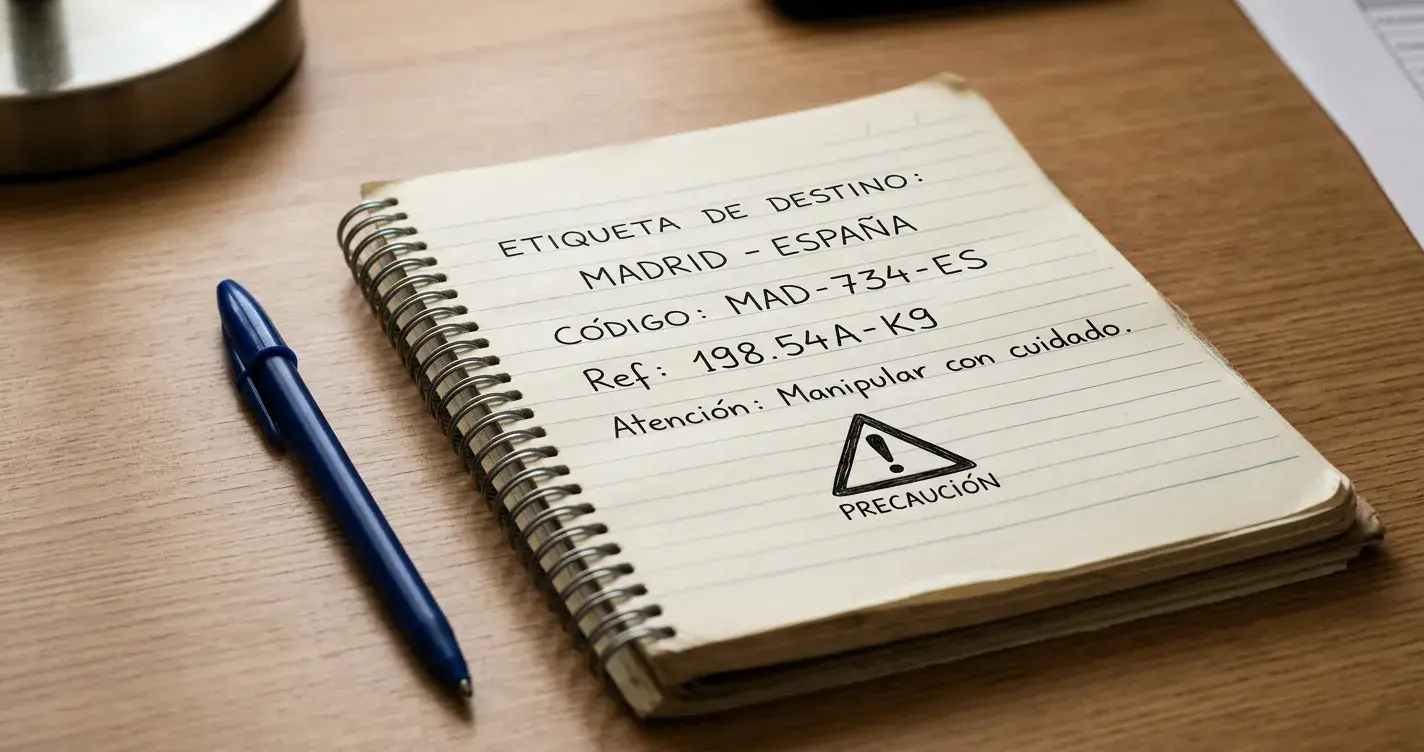 ETIQUETA DE DESTINO:
MADRID - ESPAÑA
CÓDIGO: MAD-734-ES
Ref: 198.54A-K9
Atención: Manipular con cuidado.
PRECAUCIÓN